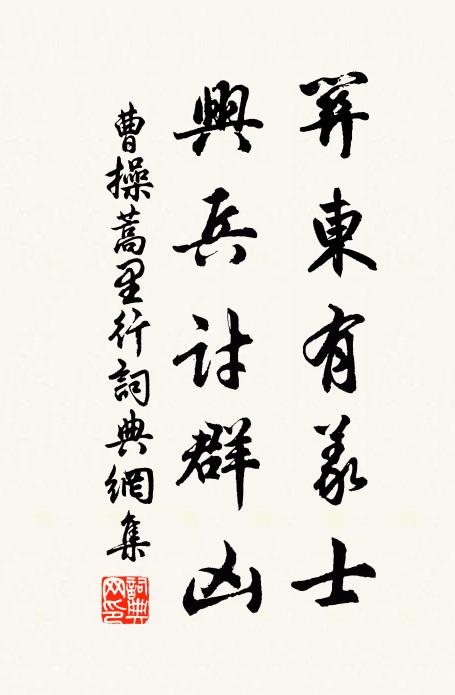 關東有義士
興兵討群凶
曹操蒿里行詞典網集
詞典網印